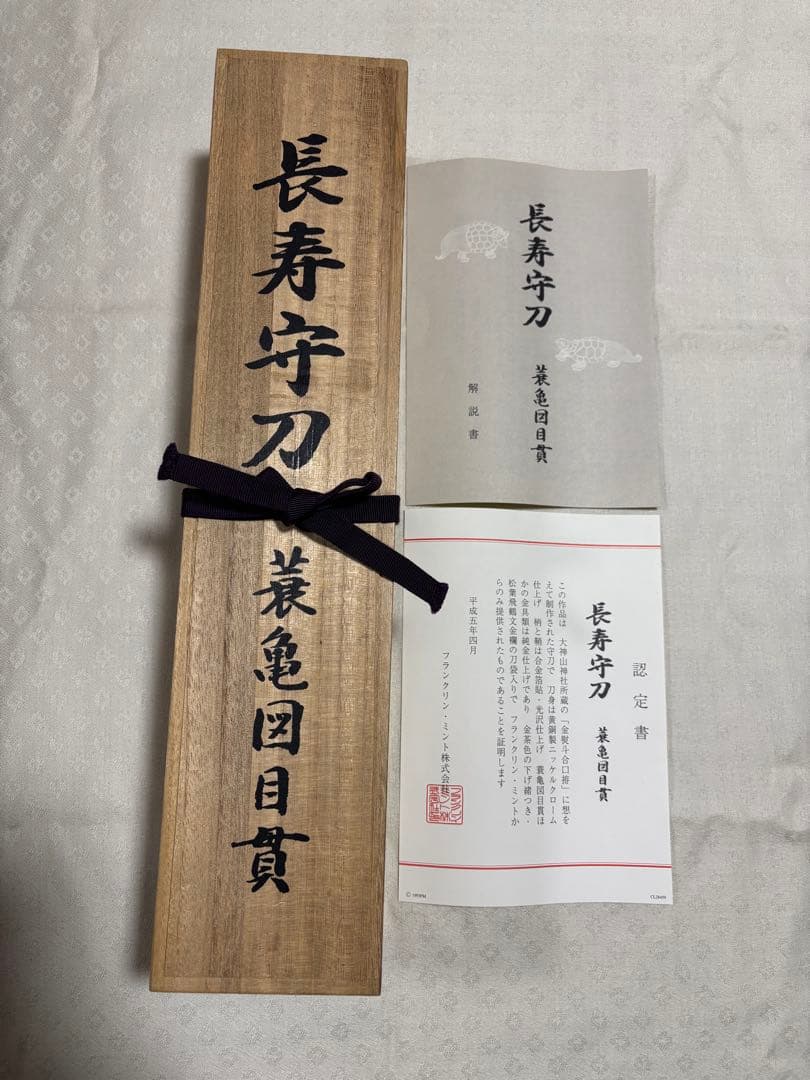 長寿守刀 蓑亀図目貫
長寿守刀
蓑亀図目貫
解説書
認定書
長寿守刀 蓑亀図目貫
この作品は 大神山神社所蔵の「金熨斗合口拵」に想を
えて制作された守刀で 刀身は黄銅製ニッケルクローム
仕上げ 柄と鞘は合金箔貼・光沢仕上げ 蓑亀図目貫ほ
かの金具類は純金仕上げであり 金茶色の下げ緒つき・
松葉飛鶴文金襴の刀袋入りで フランクリン・ミントか
らのみ提供されたものであることを証明します
平成五年四月
フランクリン・ミント株式会社